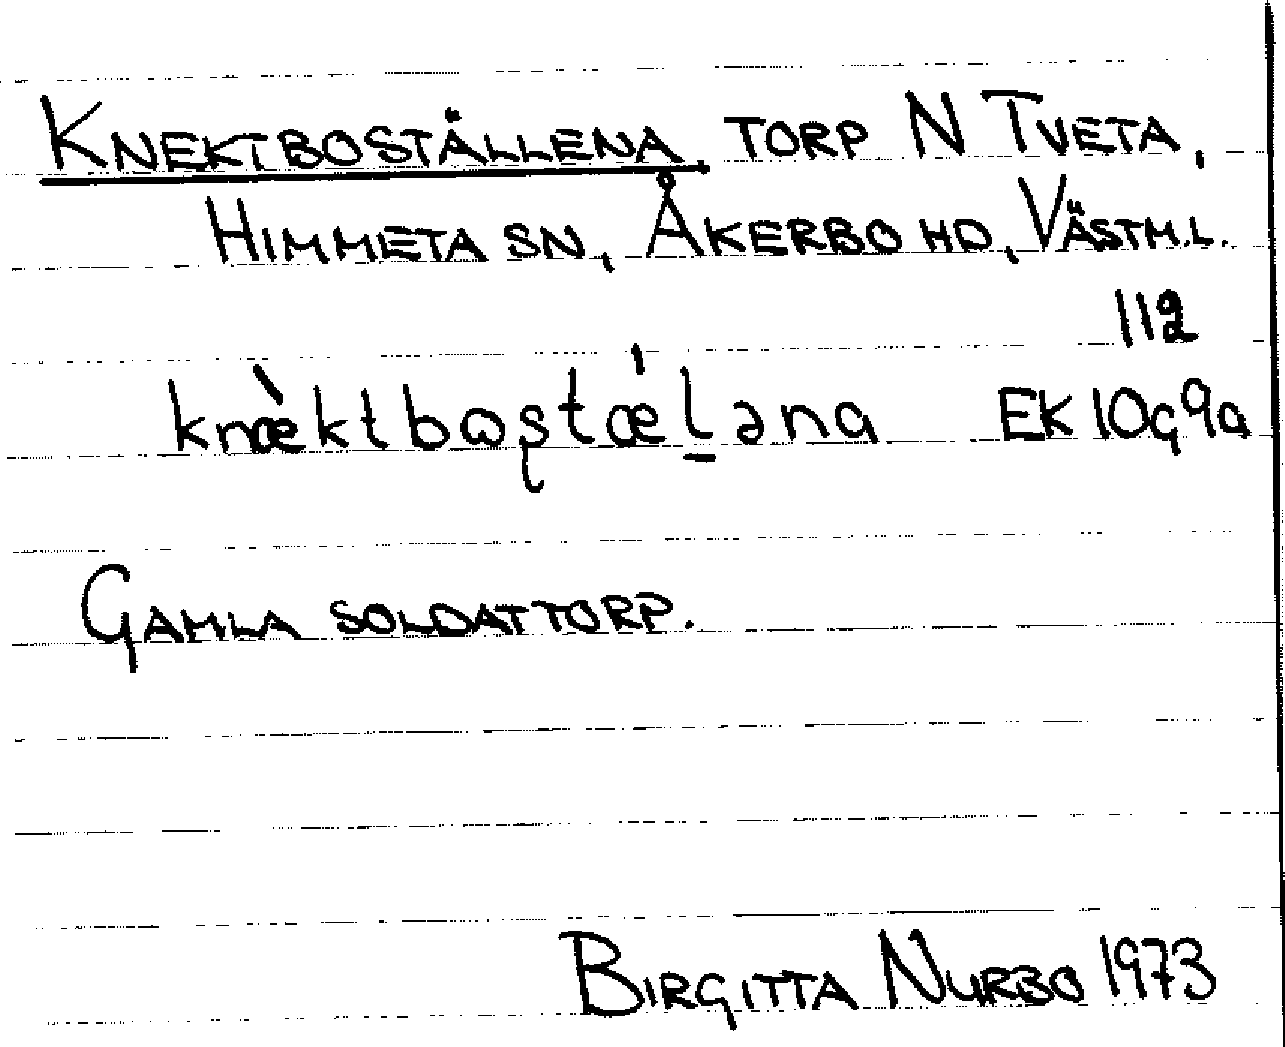 KNEKTBOSTÄLLENA, TORP N TVETA,
HIMMETA SN, ÅKERBO HD, VÄSTM.L.
112
knæ̀ktbɷʂtæ´l̠əna EK 10G9a
GAMLA SOLDATTORP.
BIRGITTA NURBO 1973